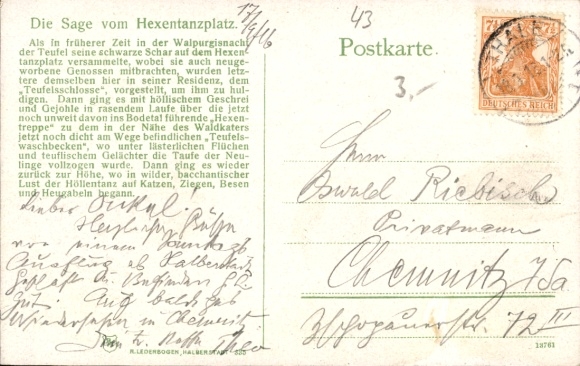 Die Sage vom Hexentanzplatz.
Als in früherer Zeit in der Walpurgisnacht
der Teufel seine schwarze Schar auf dem Hexen-
tanzplatz versammelte, wobei sie auch neuge-
worbene Genossen mitbrachten, wurden letz-
tere demselben hier in seiner Residenz, dem
„Teufelsschlosse“, vorgestellt, um ihm zu hul-
digen. Dann ging es mit höllischem Geschrei
und Gejohle in rasendem Laufe über die jetzt
noch unweit davon ins Bodetal führende „Hexen-
treppe“ zu dem in der Nähe des Waldkaters
jetzt noch dicht am Wege befindlichen „Teufels-
waschbecken“, wo unter lästerlichen Flüchen
und teuflischem Gelächter die Taufe der Neu-
linge vollzogen wurde. Dann ging es wieder
zurück zur Höhe, wo in wilder, bacchantischer
Lust der Höllentanz auf Katzen, Ziegen, Besen
und Heugabeln begann.
Lieber Onkel!
Herzliche Grüße
von einem Sonntags
Ausflug ab Halberstadt
Befinden
gut. Auf baldiges
Wiedersehen in Chemnitz
Theo
R. LEDERBOGEN, HALBERSTADT
43
Postkarte.
3.-
7½ 7½
DEUTSCHES REICH
THALE
Herrn
Oswald Riebisch
Privatmann
Chemnitz i/Sa
Zschopauerstr. 72 III
18761